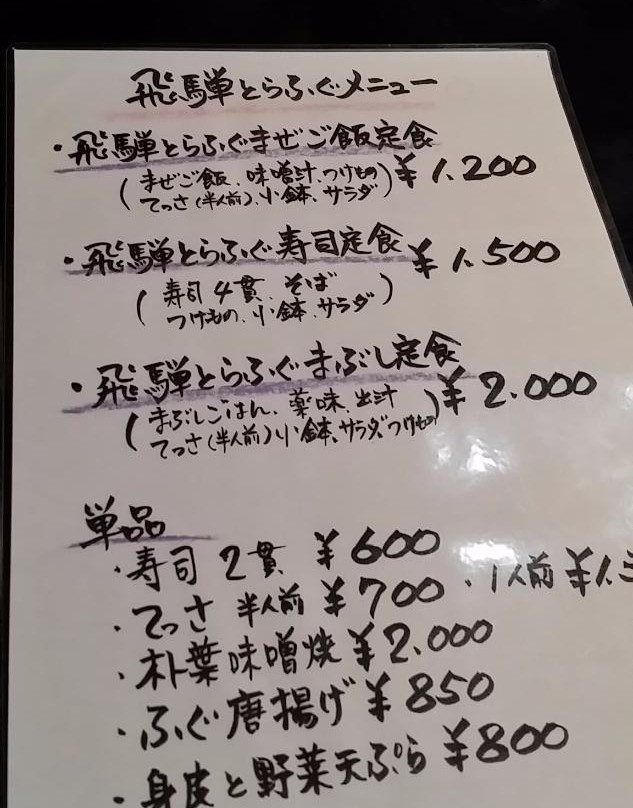 飛騨とらふぐメニュー
・飛騨とらふぐまぜご飯定食
(まぜご飯、味噌汁、つけもの ¥1,200
てっさ(半人前)、小鉢、サラダ)
・飛騨とらふぐ寿司定食 ¥1,500
(寿司4貫、そば
つけもの、小鉢、サラダ)
・飛騨とらふぐまぶし定食
(まぶしごはん、薬味、出汁 ¥2.000
てっさ(半人前)小鉢、サラダ、つけもの)
単品
・寿司 2貫 ¥600
・てっさ 半人前 ¥700 ・1人前 ¥1.
・朴葉味噌焼 ¥2.000
・ふぐ唐揚げ ¥850
・身皮と野菜天ぷら ¥800